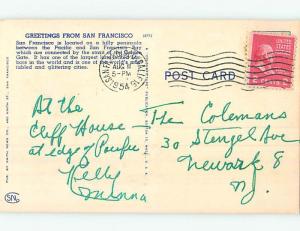 GREETINGS FROM SAN FRANCISCO
San Francisco is located on a hilly peninsula
between the Pacific and San Francisco Bay
which are connected by the strait of the Golden
Gate. It has one of the largest landlocked har-
bors in the world and is one of the world's most
fabled and glittering cities.
SAN FRANCISCO CALIF.
AUG 11
5-PM
1954
POST CARD
At the
Cliff House
at edge of Pacific
Kelly
The Colemans
30 Stengel Ave
Newark 8
N.J.
SN